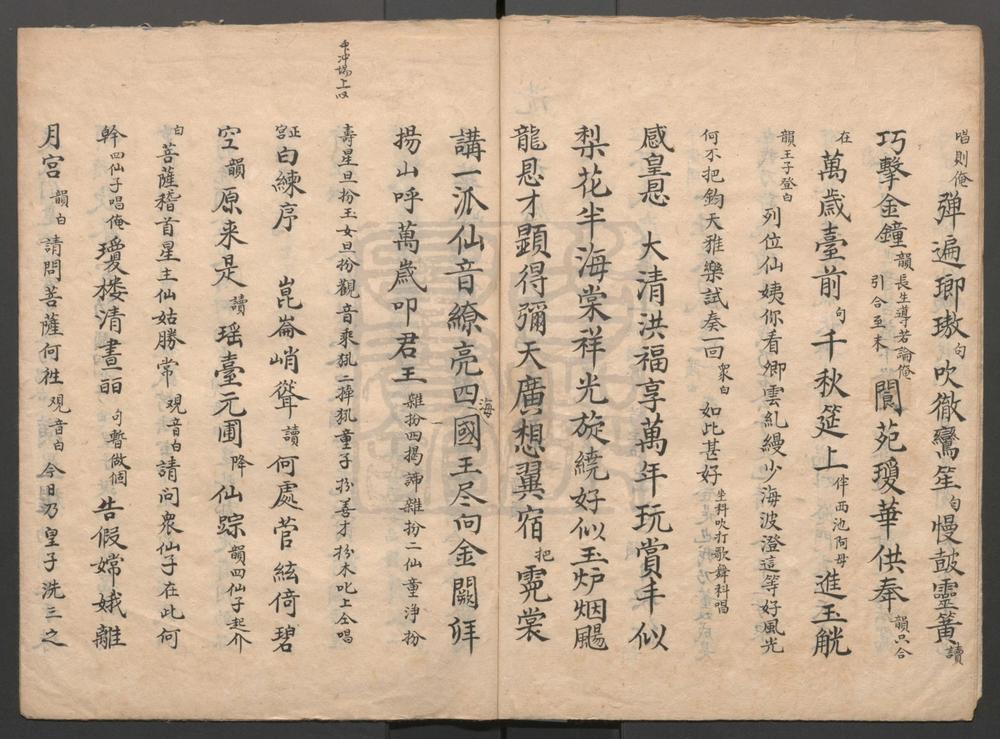 唱則俺彈遍瑯璈句吹徹鸞笙句慢鼓靈簧讀
巧擊金鐘韻長生導若論俺引合至末閬苑瓊華供奉韻只合
在萬歲臺前句千秋筵上伴西池阿母進玉觥
韻王子登白列位仙姨你看卿雲糺縵少海波澄這等好風光
何不把鈞天雅樂試奏一回衆白如此甚好坐科吹打歌舞科唱
感皇恩大清洪福享萬年玩賞丰似
梨花半海棠祥光旋繞好似玉炉烟颺
龍恩才顕得彌天廣想翼宿把霓裳
講一派仙音繚亮四海國王尽向金闕拜
揚山呼萬歲叩君王雜扮四揭諦雜扮二仙童淨扮
壽星旦扮玉女旦扮觀音乘犼二掉犼童子扮善才扮木叱上仝唱
正宮白練序崑崙峭聳讀何處菅絃倚碧
空韻原来是讀瑤臺元圃降仙踪韻四仙子起介
白菩薩稽首星主仙姑勝常观音白請问衆仙子在此何
幹四仙子唱俺瓊楼清晝丽句暫做個告假嫦娥離
月宮韻白請問菩薩何徃观音白今日乃皇子洗三之